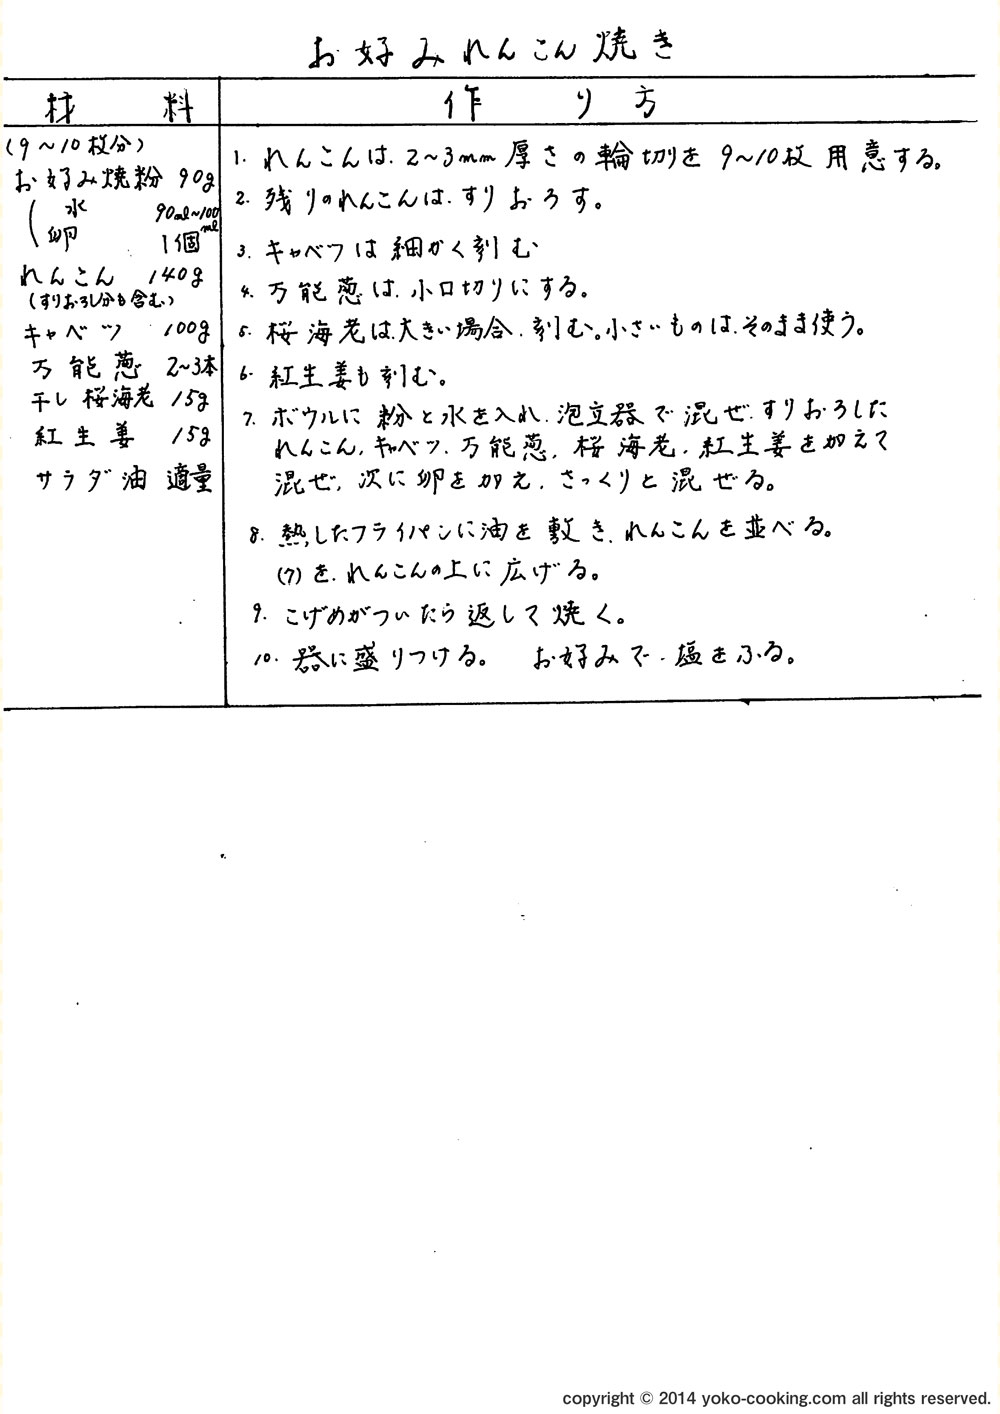 お好みれんこん焼き
材料
作り方
(9〜10枚分)
お好み焼粉 90g
水 90ml〜100ml
卵 1個
れんこん 140g
(すりおろし分も含む)
キャベツ 100g
万能葱 2〜3本
干し桜海老 15g
紅生姜 15g
サラダ油 適量
1. れんこんは、2〜3mm厚さの輪切りを9〜10枚用意する。
2. 残りのれんこんは、すりおろす。
3. キャベツは細かく刻む
4. 万能葱は、小口切りにする。
5. 桜海老は、大きい場合、刻む。小さいものは、そのまま使う。
6. 紅生姜も刻む。
7. ボウルに粉と水を入れ、泡立器で混ぜ、すりおろした
れんこん、キャベツ、万能葱、桜海老、紅生姜を加えて
混ぜ、次に卵を加え、さっくりと混ぜる。
8. 熱したフライパンに油を敷き、れんこんを並べる。
(7)を、れんこんの上に広げる。
9. こげめがついたら返して焼く。
10. 器に盛りつける。 お好みで、塩をふる。
copyright © 2014 yoko-cooking.com all rights reserved.